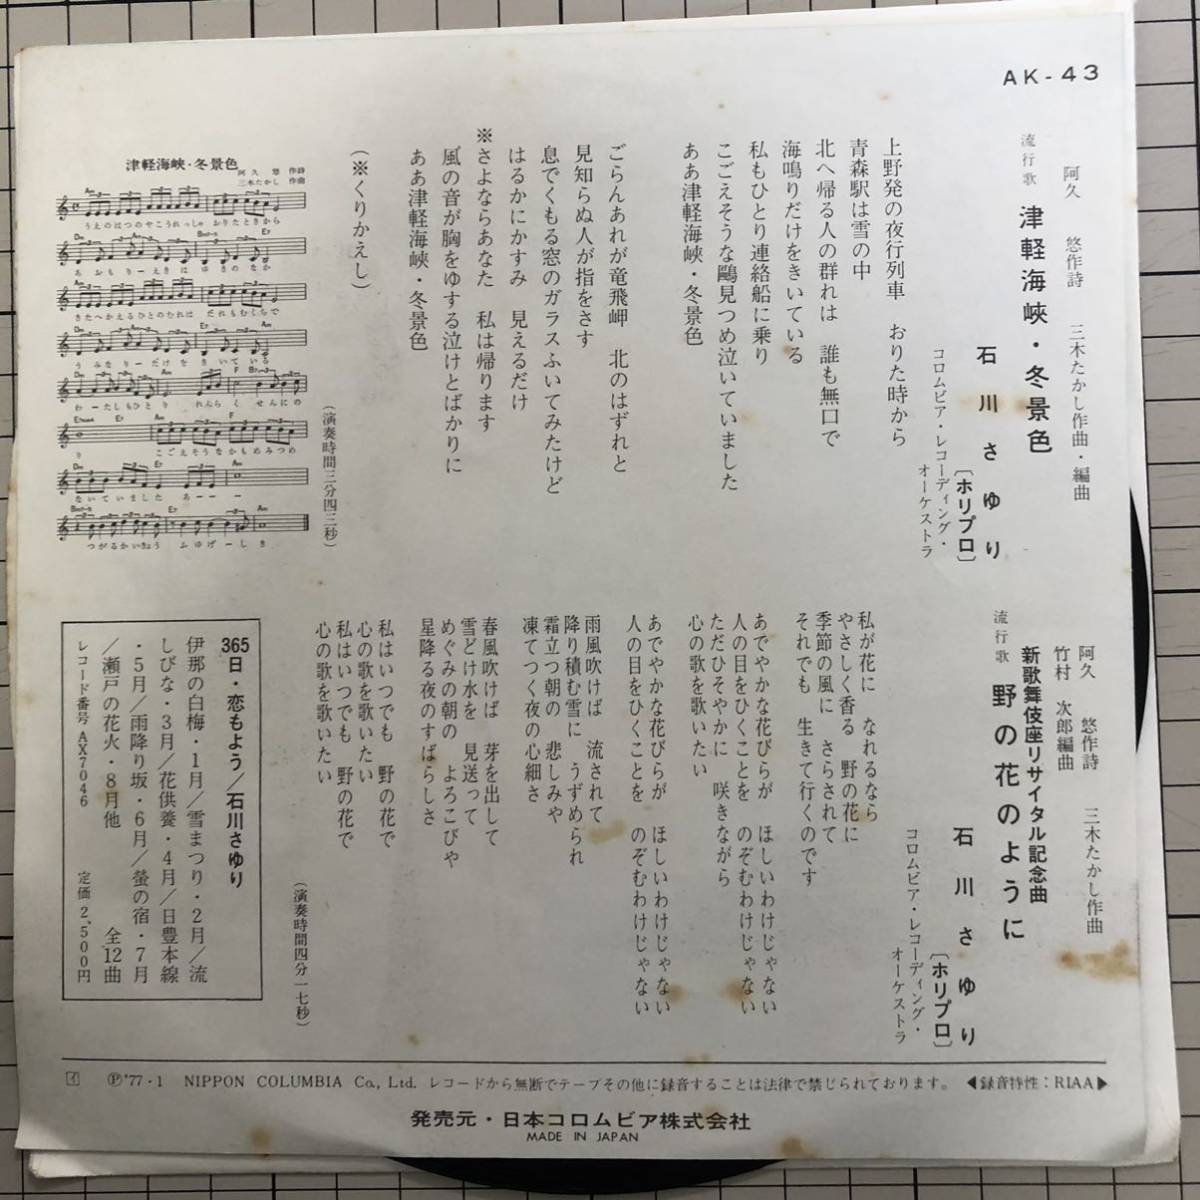 AK-43
阿久 悠作詩 三木たかし作曲・編曲
流行歌 津軽海峡・冬景色
石川さゆり
〔ホリプロ〕
コロムビア・レコーディング・
オーケストラ
上野発の夜行列車 おりた時から
青森駅は雪の中
北へ帰る人の群れは 誰も無口で
海鳴りだけをきいている
私もひとり連絡船に乗り
こごえそうな鷗見つめ泣いていました
ああ津軽海峡・冬景色
ごらんあれが竜飛岬 北のはずれと
見知らぬ人が指をさす
息でくもる窓のガラスふいてみたけど
はるかにかすみ 見えるだけ
※さよならあなた 私は帰ります
風の音が胸をゆする泣けとばかりに
ああ津軽海峡・冬景色
(※くりかえし)
(演奏時間三分四三秒)
津軽海峡・冬景色
阿久 悠 作詩
三木たかし 作曲
Am
うえのはつのやこうれっしゃ おりたときから
Dm Am E7
あおもりーえきは ゆきのなか
Am
きたへかえるひとのむれは だれもむくちで
Dm Am E7 Am
うみなりーだけを きいている
わーたしもひとり れんらくせんにの
り こごえそうなかもめみつめ
ないていました あーーー
つがるかいきょう ふゆげーしき
阿久 悠作詩 三木たかし作曲
竹村 次郎編曲
新歌舞伎座リサイタル記念曲
流行歌 野の花のように
石川さゆり
〔ホリプロ〕
コロムビア・レコーディング・
オーケストラ
私が花に なれるなら
やさしく香る 野の花に
季節の風に さらされて
それでも 生きて行くのです
あでやかな花びらが ほしいわけじゃない
人の目をひくことを のぞむわけじゃない
ただひそやかに 咲きながら
心の歌を歌いたい
あでやかな花びらが ほしいわけじゃない
人の目をひくことを のぞむわけじゃない
雨風吹けば 流されて
降り積む雪に うずめられ
霜立つ朝の 悲しみや
凍てつく夜の心細さ
春風吹けば 芽を出して
雪どけ水を 見送って
めぐみの朝の よろこびや
星降る夜のすばらしさ
私はいつでも 野の花で
心の歌を歌いたい
私はいつでも 野の花で
心の歌を歌いたい
(演奏時間四分一七秒)
365日・恋もよう/石川さゆり
伊那の白梅・1月/雪まつり・2月/流
しびな・3月/花供養・4月/日豊本線
・5月/雨降り坂・6月/螢の宿・7月
/瀬戸の花火・8月他 全12曲
レコード番号 AX7046 定価 2,500円
Ⓟ'77・1 NIPPON COLUMBIA Co., Ltd. レコードから無断でテープその他に録音することは法律で禁じられております。 ◀録音特性:RIAA▶
発売元・日本コロムビア株式会社
MADE IN JAPAN